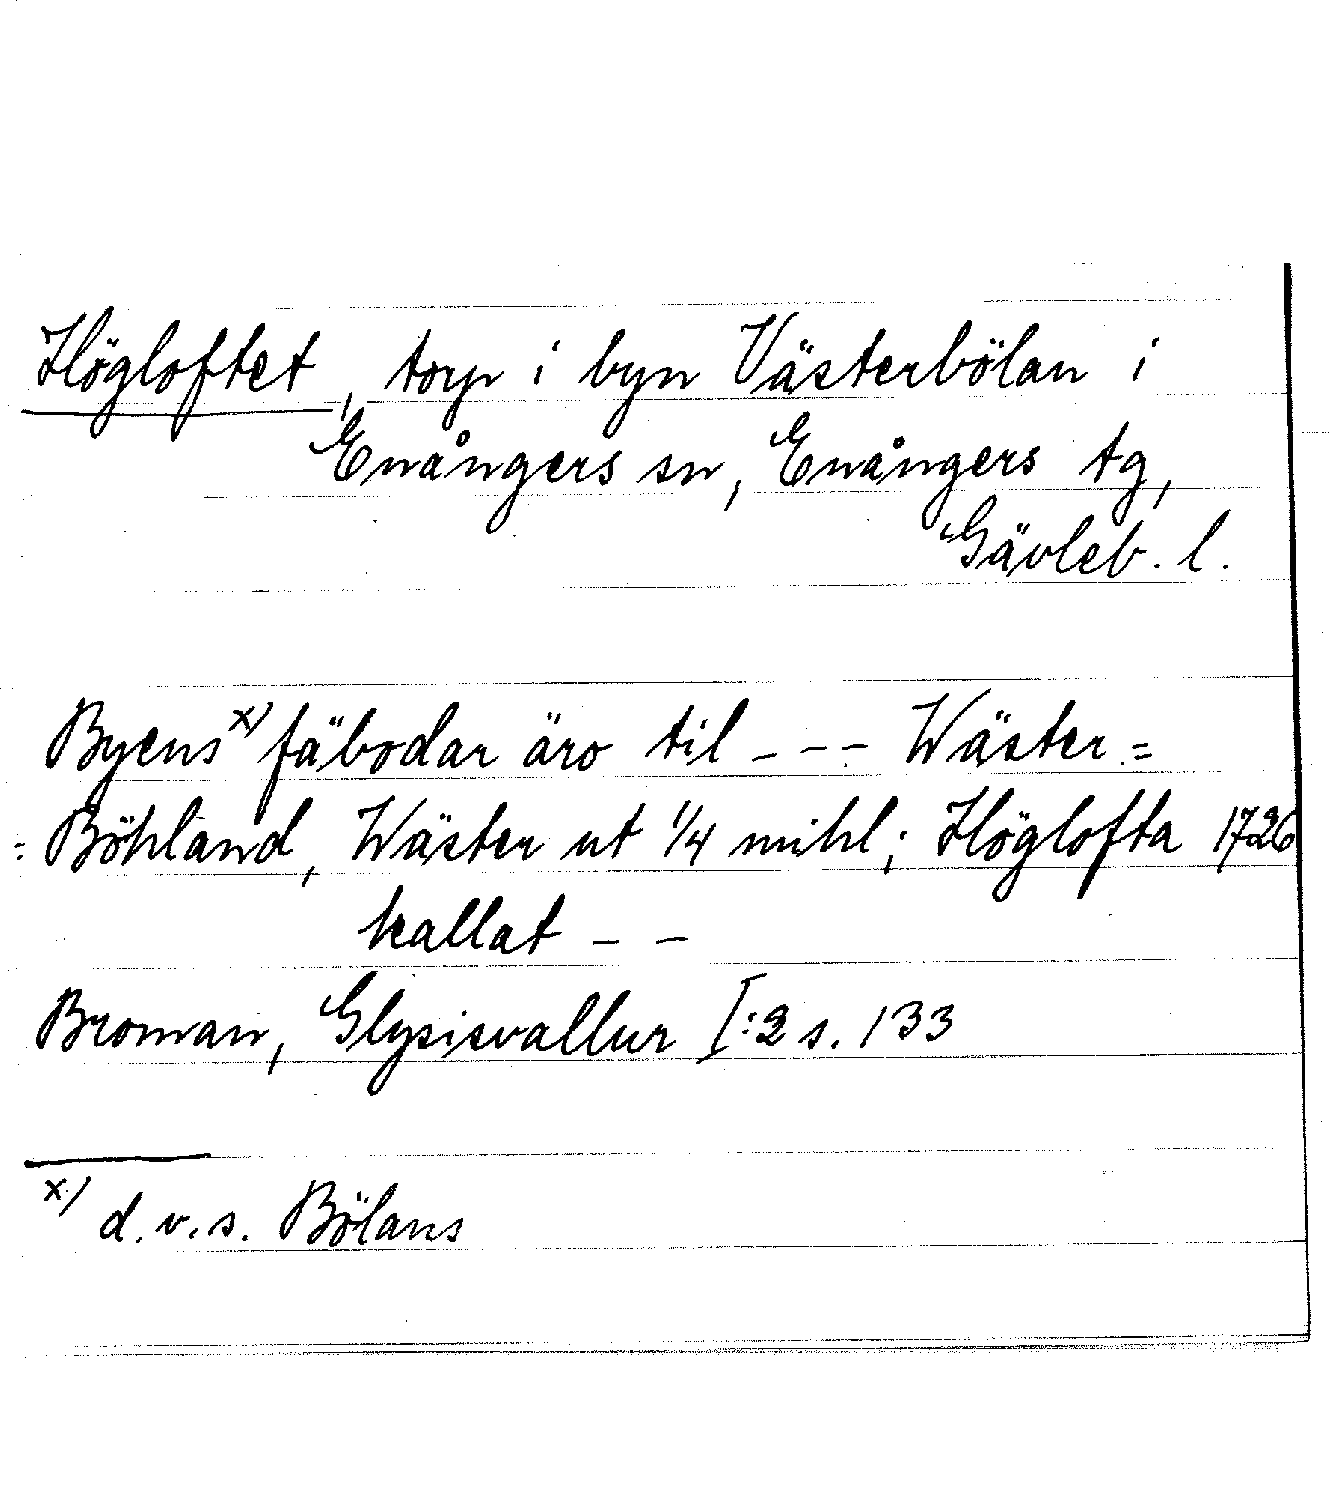 Högloftet, torp i byn Västerbölan i
Enångers sn, Enångers tg,
Gävleb. l.
Byens x) fäbodar äro til - - - Wäster =
= Böhland, Wäster ut 1/4 mihl; Höglofta 1726
kallat - -
Broman, Glysisvallur I:2 s. 133
x) d.v.s. Bölans